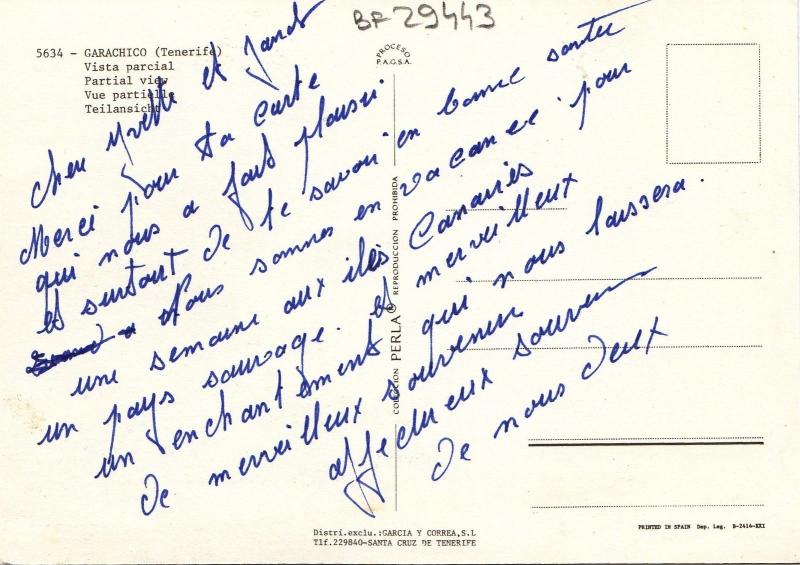 BF 29443
5634 - GARACHICO (Tenerife)
Vista parcial
Partial view
Vue partielle
Teilansicht
PROCESO
P.A.G.S.A.
Cher Yvette et
Merci pour ta carte
qui nous a fait plaisir.
et surtout de te savoir en bonne santée
Nous sommes en vacance pour
une semaine aux iles Canaries
un pays sauvage. et merveilleux
un enchantements qui nous laissera.
de merveilleux souvenir
affectueux souvenir
de nous deux
COLECCION PERLA® REPRODUCCION PROHIBIDA
Distri.exclu.:GARCIA Y CORREA,S.L
Tlf.229840-SANTA CRUZ DE TENERIFE
PRINTED IN SPAIN Dep. Leg. B-2414-XXI